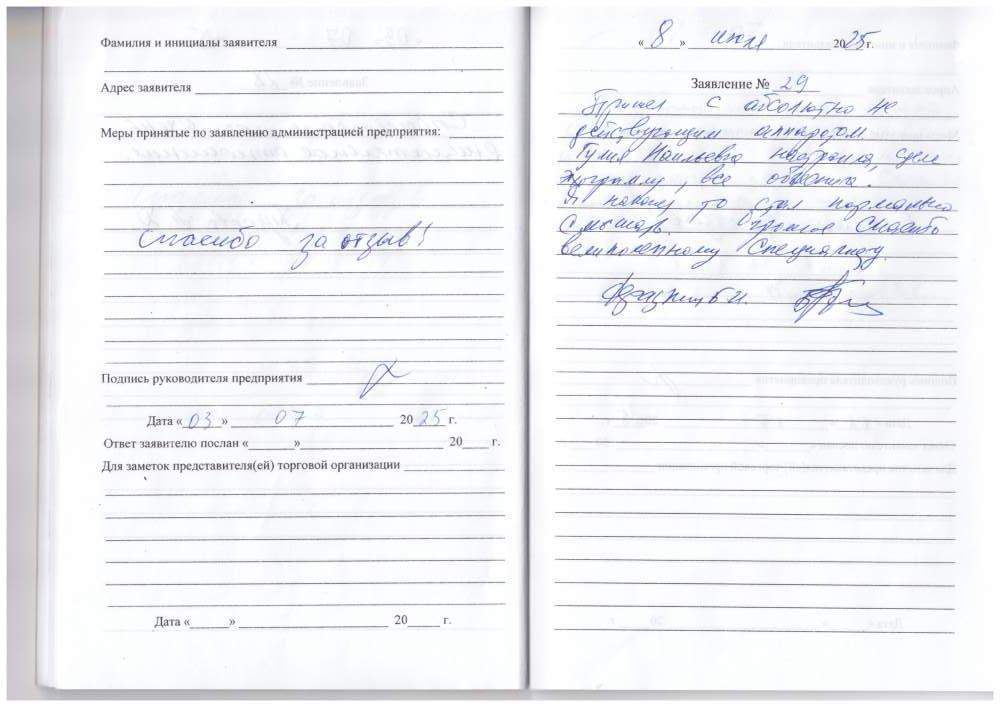 Фамилия и инициалы заявителя
Адрес заявителя
Меры принятые по заявлению администрацией предприятия:
Спасибо за отзыв!
Подпись руководителя предприятия
Дата «03» 07 2025 г.
Ответ заявителю послан «» 20 г.
Для заметок представителя(ей) торговой организации
Дата «» 20 г.
«8» июля 2025г.
Заявление № 29
Пришел с абсолютно не
действующим аппаратом
Наильевна настроила,
программу, все объяснила.
Я наконец то стал нормально
слышать. Огромное спасибо
великолепному специалисту.